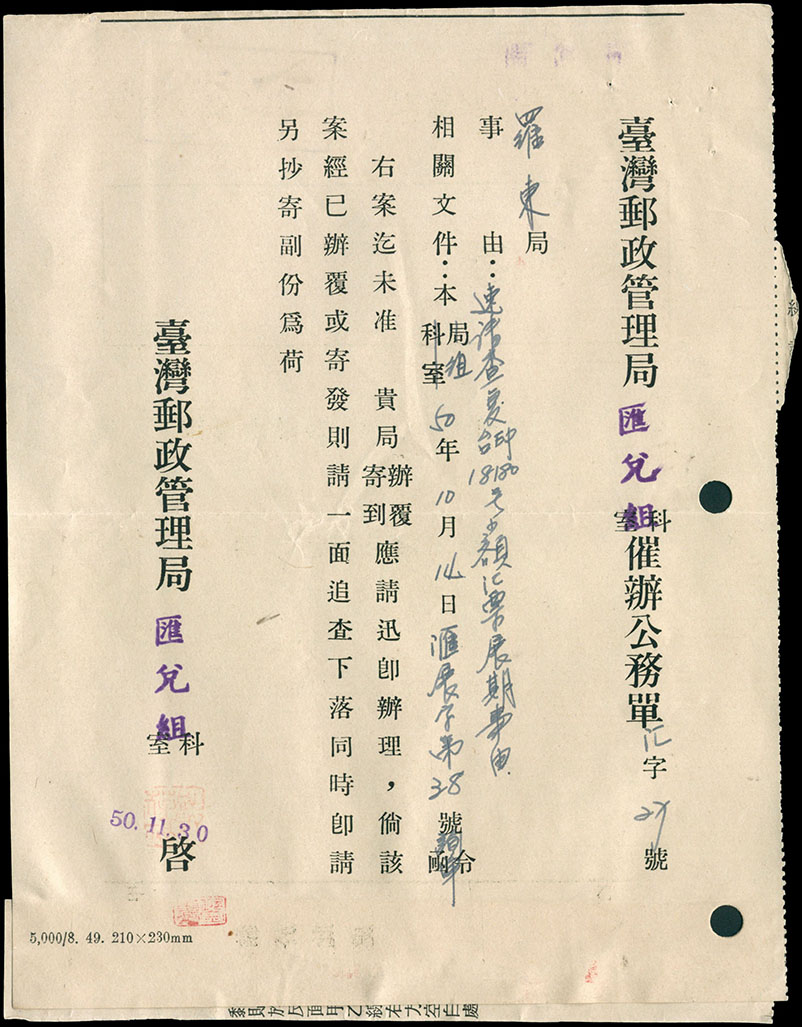 臺灣郵政管理局 匯兌組 科室 催辦公務單 汇字 27 號
羅東局
事由：速請查复台印18180號小額汇票展期事由
相關文件：本局組科室 50年10月14日 匯展字第38號 令函
右案迄未准　貴局辦覆寄到應請迅卽辦理，倘該
案經已辦覆或寄發則請一面追查下落同時卽請
另抄寄副份爲荷
臺灣郵政管理局 匯兌組 科室 啓
50.11.30
5,000/8. 49. 210×230mm